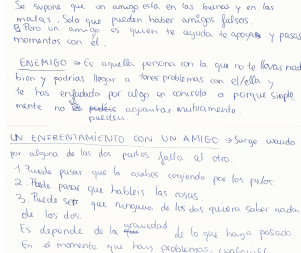 Se supone que un amigo esta en las buenas y en las
malas. Solo que pueden haber amigos falsos.
Pero un amigo es quien te ayuda te apoya y pasas
momentos con él.
ENEMIGO → Es aquella persona con la que no te llevas nada
bien y podrías llegar a tener problemas con el/ella y
te has enfadado por algo en concreto o porque simple
mente no aguantar mutuamente
pueden
UN ENFRENTAMIENTO CON UN AMIGO → Surge cuando
por alguna de las dos partes falla al otro.
1. Puede pasar que lo cogiendo por los pelos.
2. Puede pasar que habléis las cosas.
3. Puede ser que ninguno de los dos quiera saber nada
de los dos.
Es depende de la gravedad de lo que haya pasado
En el momento que hay problemas,